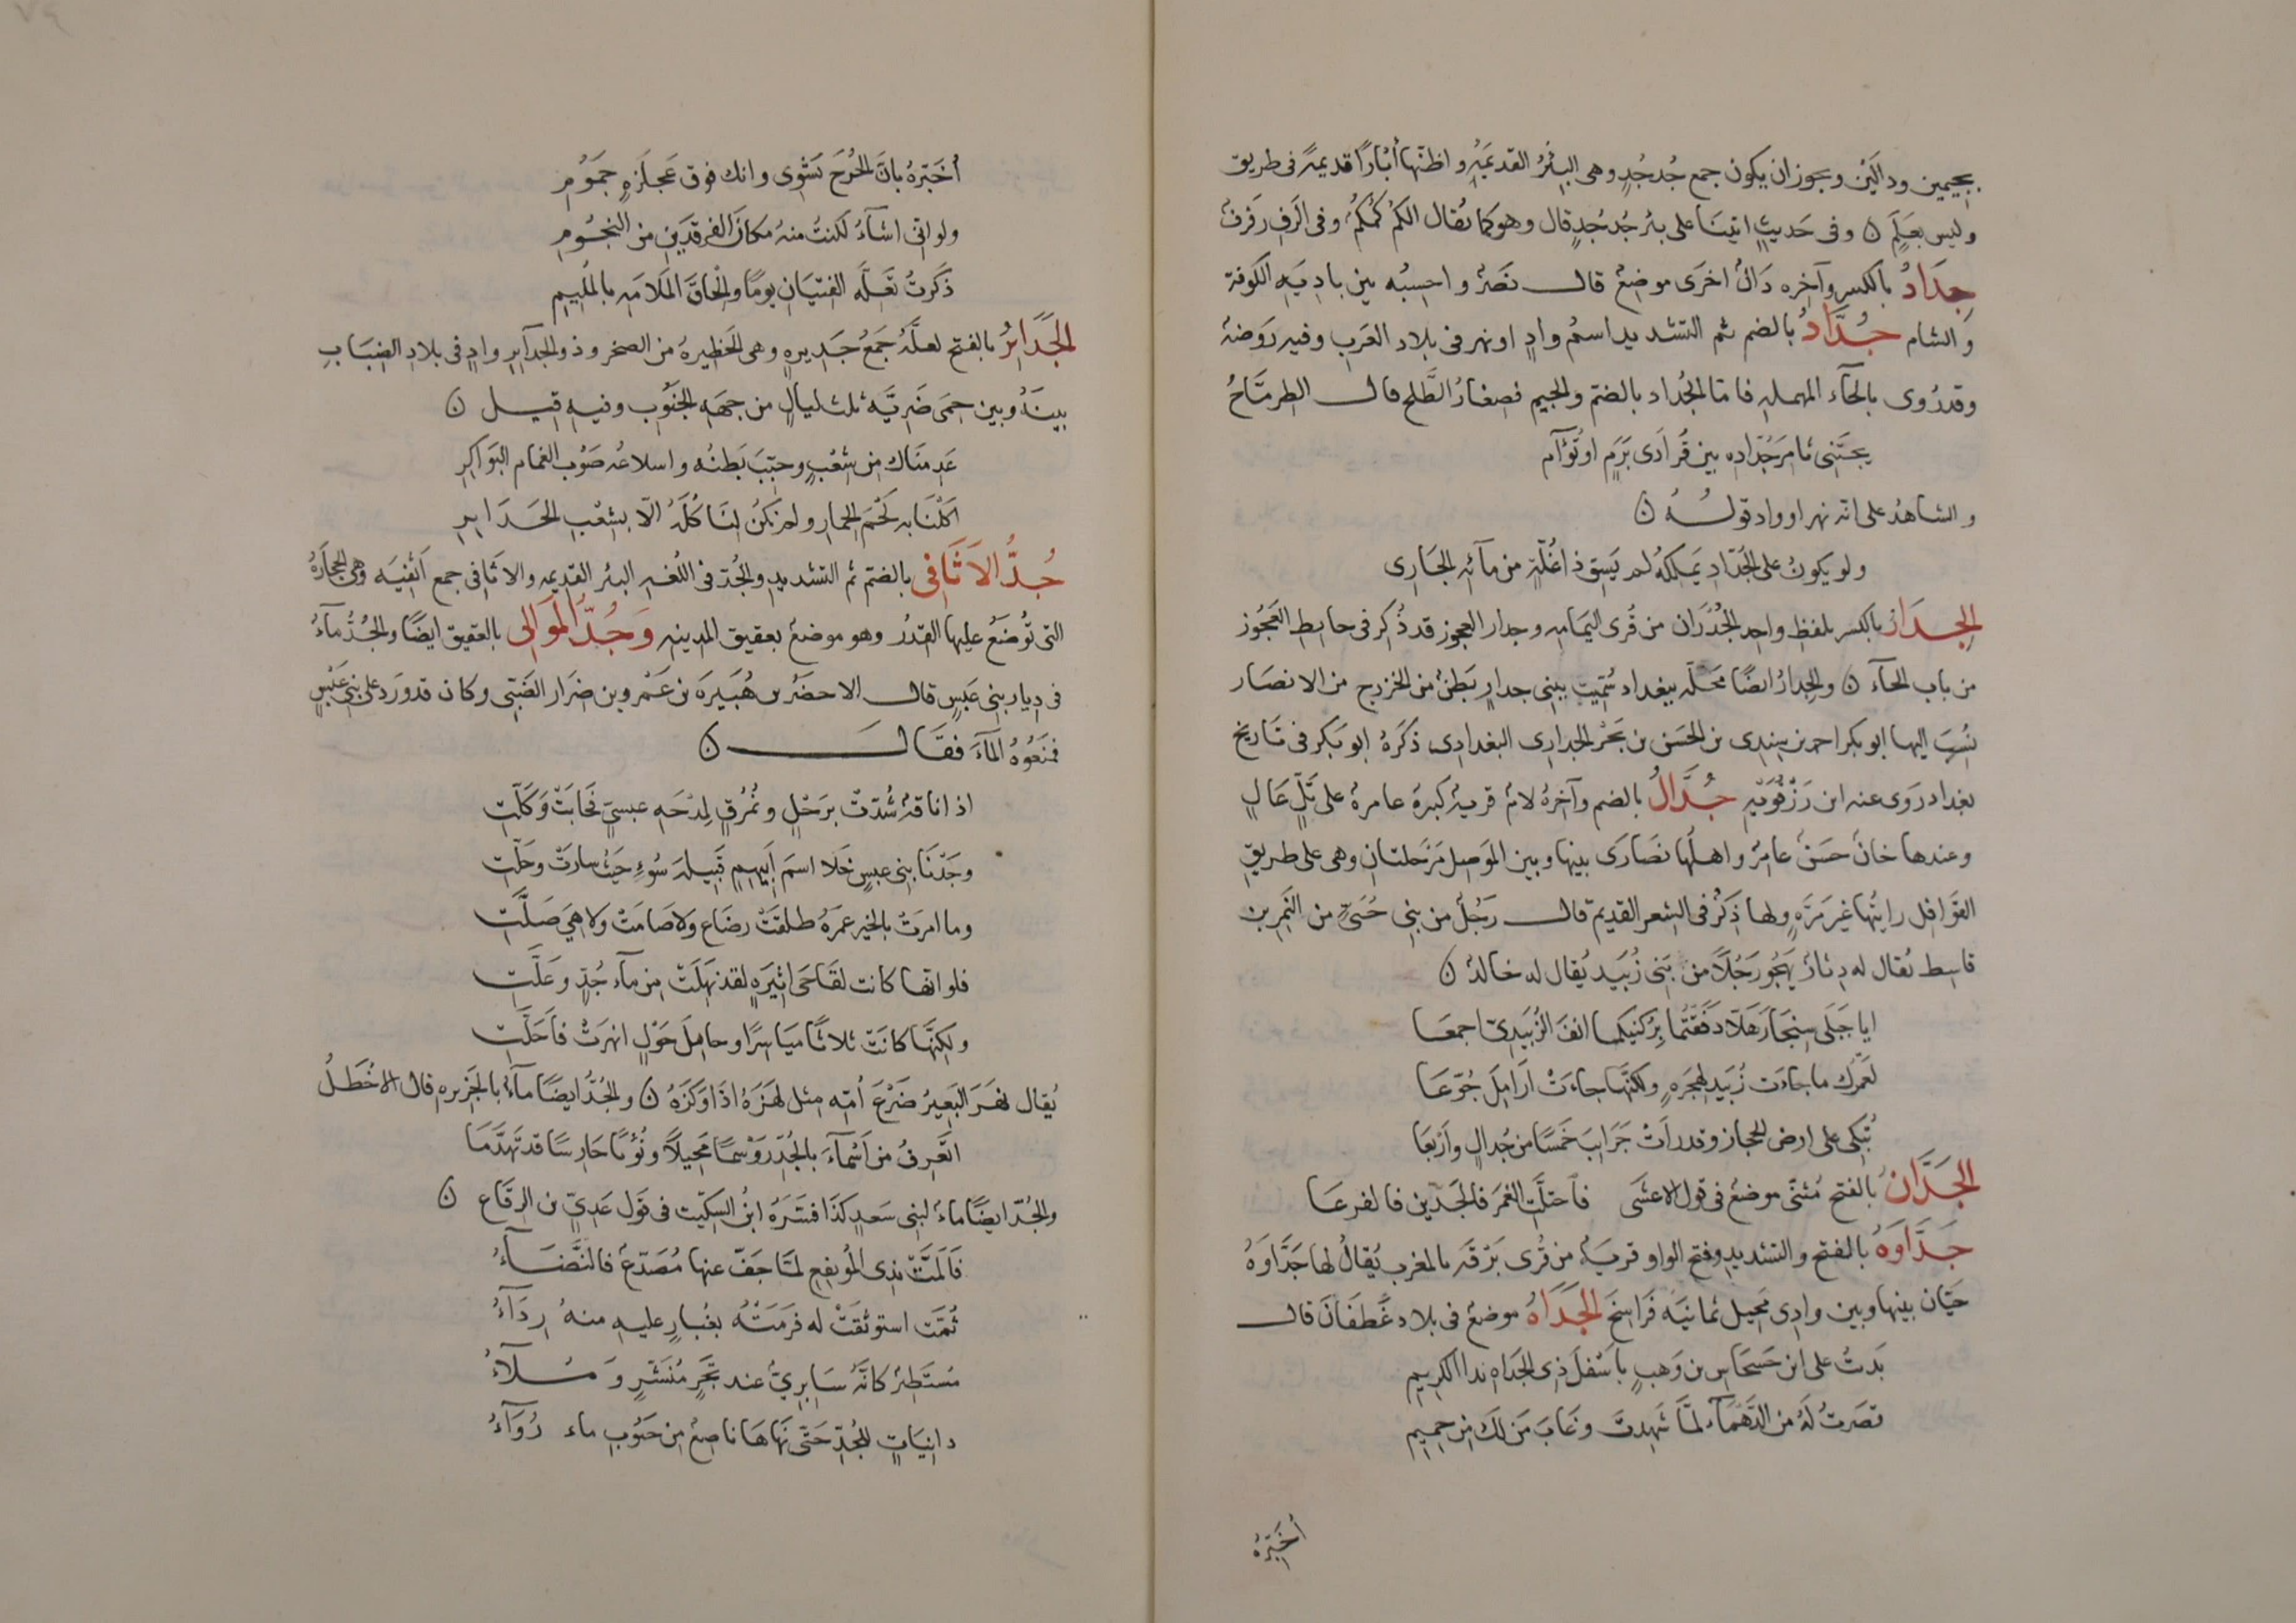 بجيمين ودالَيْن ويجوز ان يكون جمع جُدجُدٍ وهى البئرُ القديمَةُ واظنّها أبْارًا قديمةً فى طريق
وليس بعَلَم ن وفى حَديثٍ اتينَا على بئر جُدجُدٍ قال وهو كما يُقال الكُمُ كُمكُمُ وفى الرَفِ رَفرفُ
جِدَادُ بالكسر وآخره دَالُ اخرَى موضِعٌ قال نَصرٌ واحسِبُه بين باديَةِ الكوفة
والشام جُدَّادُ بالضم ثم التشديد اسمُ وادٍ او نهر فى بلاد العَرب وفيه رَوضةُ
وقد رُوى بالحآء المهمله فاما الجُداد بالضمّ والجيم فصغارُ الطَّلح قال الطرمَّاحُ
يجتَنِى ثامِرَ جُدّادِه بين فُرادَى بَرَمٍ او تُوَآم
والشاهدُ على انه نهر او واد قولُهُ ن
ولو يكونُ على الجُدّادِ يَملكهُ لم يَسقِ ذا غُلّةٍ من مآئه الجَارى
الجِدَارُ بالكسر بلفظ واحِد الجُدُرَان من قُرى اليَمَامه وجدار العجوز قد ذُكِر فى حايط العَجُوز
من باب الحآء ن والجِدارُ ايضًا مَحَلّه ببغداد سُمّيت ببنى جدارٍ بَطنٌ من الخزرج من الانصَار
نُسِبَ اليها ابو بكر احمد بن سِندِى بن الحَسَن بن بَحْر الجدارى البغدادى ذكَرَهُ ابو بَكر فى تاريخ
بغداد رَوى عنه ابن رَزقُوَيْه جُدَالُ بالضم وآخرهُ لامٌ قريةٌ كبيرةٌ عامرةٌ على تَلٍّ عَالٍ
وعندها خانٌ حسَنٌ عامرٌ واهلُها نصَارَى بينها وبين الموصِل مَرْحلتانِ وهى على طريقِ
القَوافِل رايتُها غيرَ مَرَّةٍ ولها ذِكرٌ فى الشعر القديم قال رَجُلٌ من بنى حُيَىٍّ من النَمِر بن
قاسِط يُقال له دِثارٌ يَهجُو رَجُلًا من بَنى زُبَيد يُقال له خالدٌ ن
ايا جَبَلى سِنجَارَ هَلّا دَقَقتُما بِرُكنيكما انفَ الزُبَيدِىّ اجمعَا
لَعَمرُك ما جاءَت زُبَيد لِهجرَةٍ ولكنّها جاءَتْ ارَامِلَ جُوَّعَا
تُبَكِّى على ارض الحجاز وقد راَتْ جَرَايبَ خَمسًا من جُدالٍ واَربَعا
الجَدَّانُ بالفتح مُثنّى موضعٌ فى قول الاعشَى فاحتلّت الغَمرَ فالجَدّين فالفرعَا
جَدَّاوَهُ بالفتح والتشديدِ وفتح الواو قريَةٌ من قُرى بَرْقَه بالمغرب يُقالُ لها جَدَّاوَهُ
حيّان بينها وبين وادِى مَخيل ثمانيَة فَرَاسِخَ الجَدَاةُ موضعٌ فى بلاد غَطَفَانَ قال
بَدتُ على ابن حَسحَاسِ بن وَهبٍ باَسْفَلَ ذِى الجَداه ندا الكرِيم
قصَرتُ لَهُ من الدَّهْمَآءِ لمَّا شَهِدتَ وغَابَ مَن لَك مِن حمِيم
أخَبّرهُ
أُخَبّرهُ بانّ الجُرحَ يَشْوِى وانك فوق عَجلَزةٍ جَمَوُمِ
ولو انى اشآءُ لكنتُ منهُ مكانَ الفرقَدَينِ من النجُومِ
ذَكرتُ تَعِلَّه الفتيَانِ يومًا والحَاقَ المَلامَهِ بالمُلِيم
الجَدَايرُ بالفتح لعلّهُ جَمعُ جَدِيره وهى الحَظيرهُ من الصخر وذو الجدآيرِ وادٍ فى بلادِ الضِبَابِ
بينَهُ وبين حِمَى ضَرِيَّه ثلث ليالٍ من جهَهِ الجَنُوب وفيه قيل ن
عَدِمناك مِن شِعْبٍ وحبّبَ بَطنُه واسلاعُه صَوْب الغمام البَوَاكِرِ
اكَلْنَا به لحْمَ الحِمَارِ ولم نكُن لِنَاكُلَهُ الّا بشِعْبِ الجَدَايرِ
جُدُّ الاَثَافِى بالضمّ ثم التشديدِ والجُدّ فى اللُغه البئر القديمه والاثَافى جمع اُثفيَه وهى الحِجَارَهُ
التى تُوضَعُ عليها القِدرُ وهو موضعٌ بعقيق المدينه وَجُدُّ المَوَالى بالعقيق ايضًا والجُدُّ مآءٌ
فى دِيار بنى عَبسٍ قال الاخضَرُ بن هُبَيرَه بن عَمرو بن ضِرَار الضَبّى وكان قد ورَد على بنى عَبْسٍ
فمنَعُوهُ المآءَ فقَالَ ن
اذا ناقهٌ شُدّتْ برَحْلٍ ونُمرُقٍ لِمدْحَهِ عبسىّ فخابَتْ وَكَلّتِ
وجَدْنَا بنى عبسٍ خَلا اسمَ اَبِيهِمِ قَبيلهَ سُوءٍ حَيْثُ سارتْ وحَلّتِ
وما امرَتْ بالخير عمرَهُ طلقَتْ رضَاع ولا صَامَتْ ولا هِىَ صَلَّتِ
فلو انّها كانت لقَاحَى اثيرَهٍ لقد نهِلَتْ من مآء جُدٍّ وعَلَّتِ
ولكنّها كانَتْ ثلاثًا ميَاسِرًا وحامِلَ حَوْلٍ انهرَتْ فاَحَلَّتِ
يُقال نهَزَ البَعيرُ ضَرْعَ اُمّه مثل لهَزَهُ اذَا وَكَزَهُ ن والجُدُّ ايضًا مآءٌ بالجَزيره قال الاخطَلُ
اتَعرِفُ من اَسْمآءَ بالجُدّ رَوْسمًا مُحيلًا ونُؤيًا حَارِسًا قد تَهدَّمَا
والجُدّ ايضًا ماءٌ لبنى سَعدٍ كذَا فسَّرَهُ ابنُ السِكّيت فى قول عَدىّ بن الرِقَاع ن
فَاَلَمتَّ بذى المُوَيقِع لمّا جَفَّ عنها مُصَدّعٌ فالنَضَآءُ
ثُمّت استوثَقَتْ له فرَمَتْهُ بغُبارٍ عليه منهُ رِدَآءُ
مُستَطِيرٌ كانّهُ سَابِرِىٌّ عند تَجْرٍ مُنَشَّرٍ وَمُلآءُ
دانيَاتٍ للجُدّ حَتّى نَهَاهَا ناصِعٌ مِن جَنُوبِ ماء رُوَآءُ